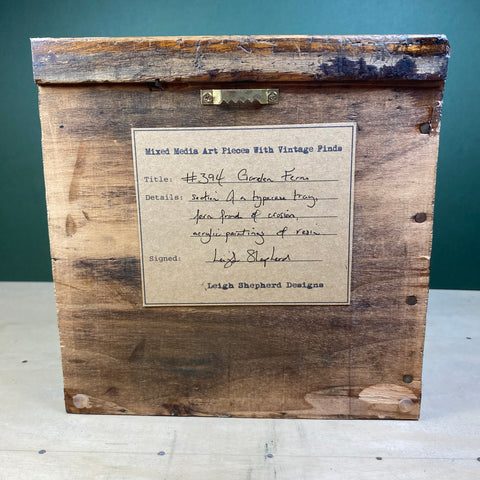 Mixed Media Art Pieces With Vintage Finds
Title: #394 Garden Fern
Details: section of a typecase tray,
fern frond of
acrylic paintings of resin
Signed: Leigh Shepherd
Leigh Shepherd Designs